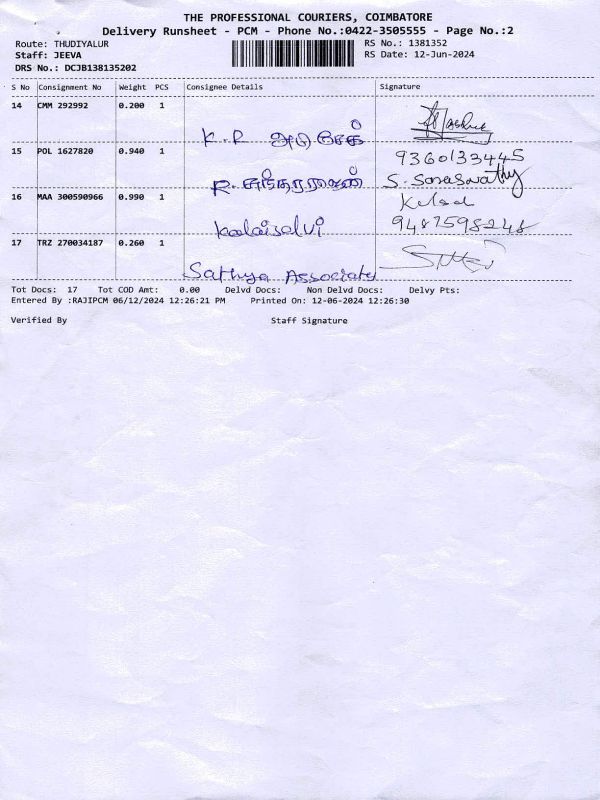 THE PROFESSIONAL COURIERS, COIMBATORE
Delivery Runsheet - PCM - Phone No.:0422-3505555 - Page No.:2
Route: THUDIYALUR
RS No.: 1381352
Staff: JEEVA
RS Date: 12-Jun-2024
DRS No.: DCJB138135202
S No Consignment No Weight PCS Consignee Details Signature
14 CMM 292992 0.200 1
K.R
15 POL 1627820 0.940 1
9360133445
R. சுந்தரராஜன்
S. Saraswathy
16 MAA 300590966 0.990 1
Kalaiselvi
9487598248
17 TRZ 270034187 0.260 1
Sathya Associates
Tot Docs: 17 Tot COD Amt: 0.00 Delvd Docs: Non Delvd Docs: Delvy Pts:
Entered By :RAJIPCM 06/12/2024 12:26:21 PM Printed On: 12-06-2024 12:26:30
Verified By Staff Signature